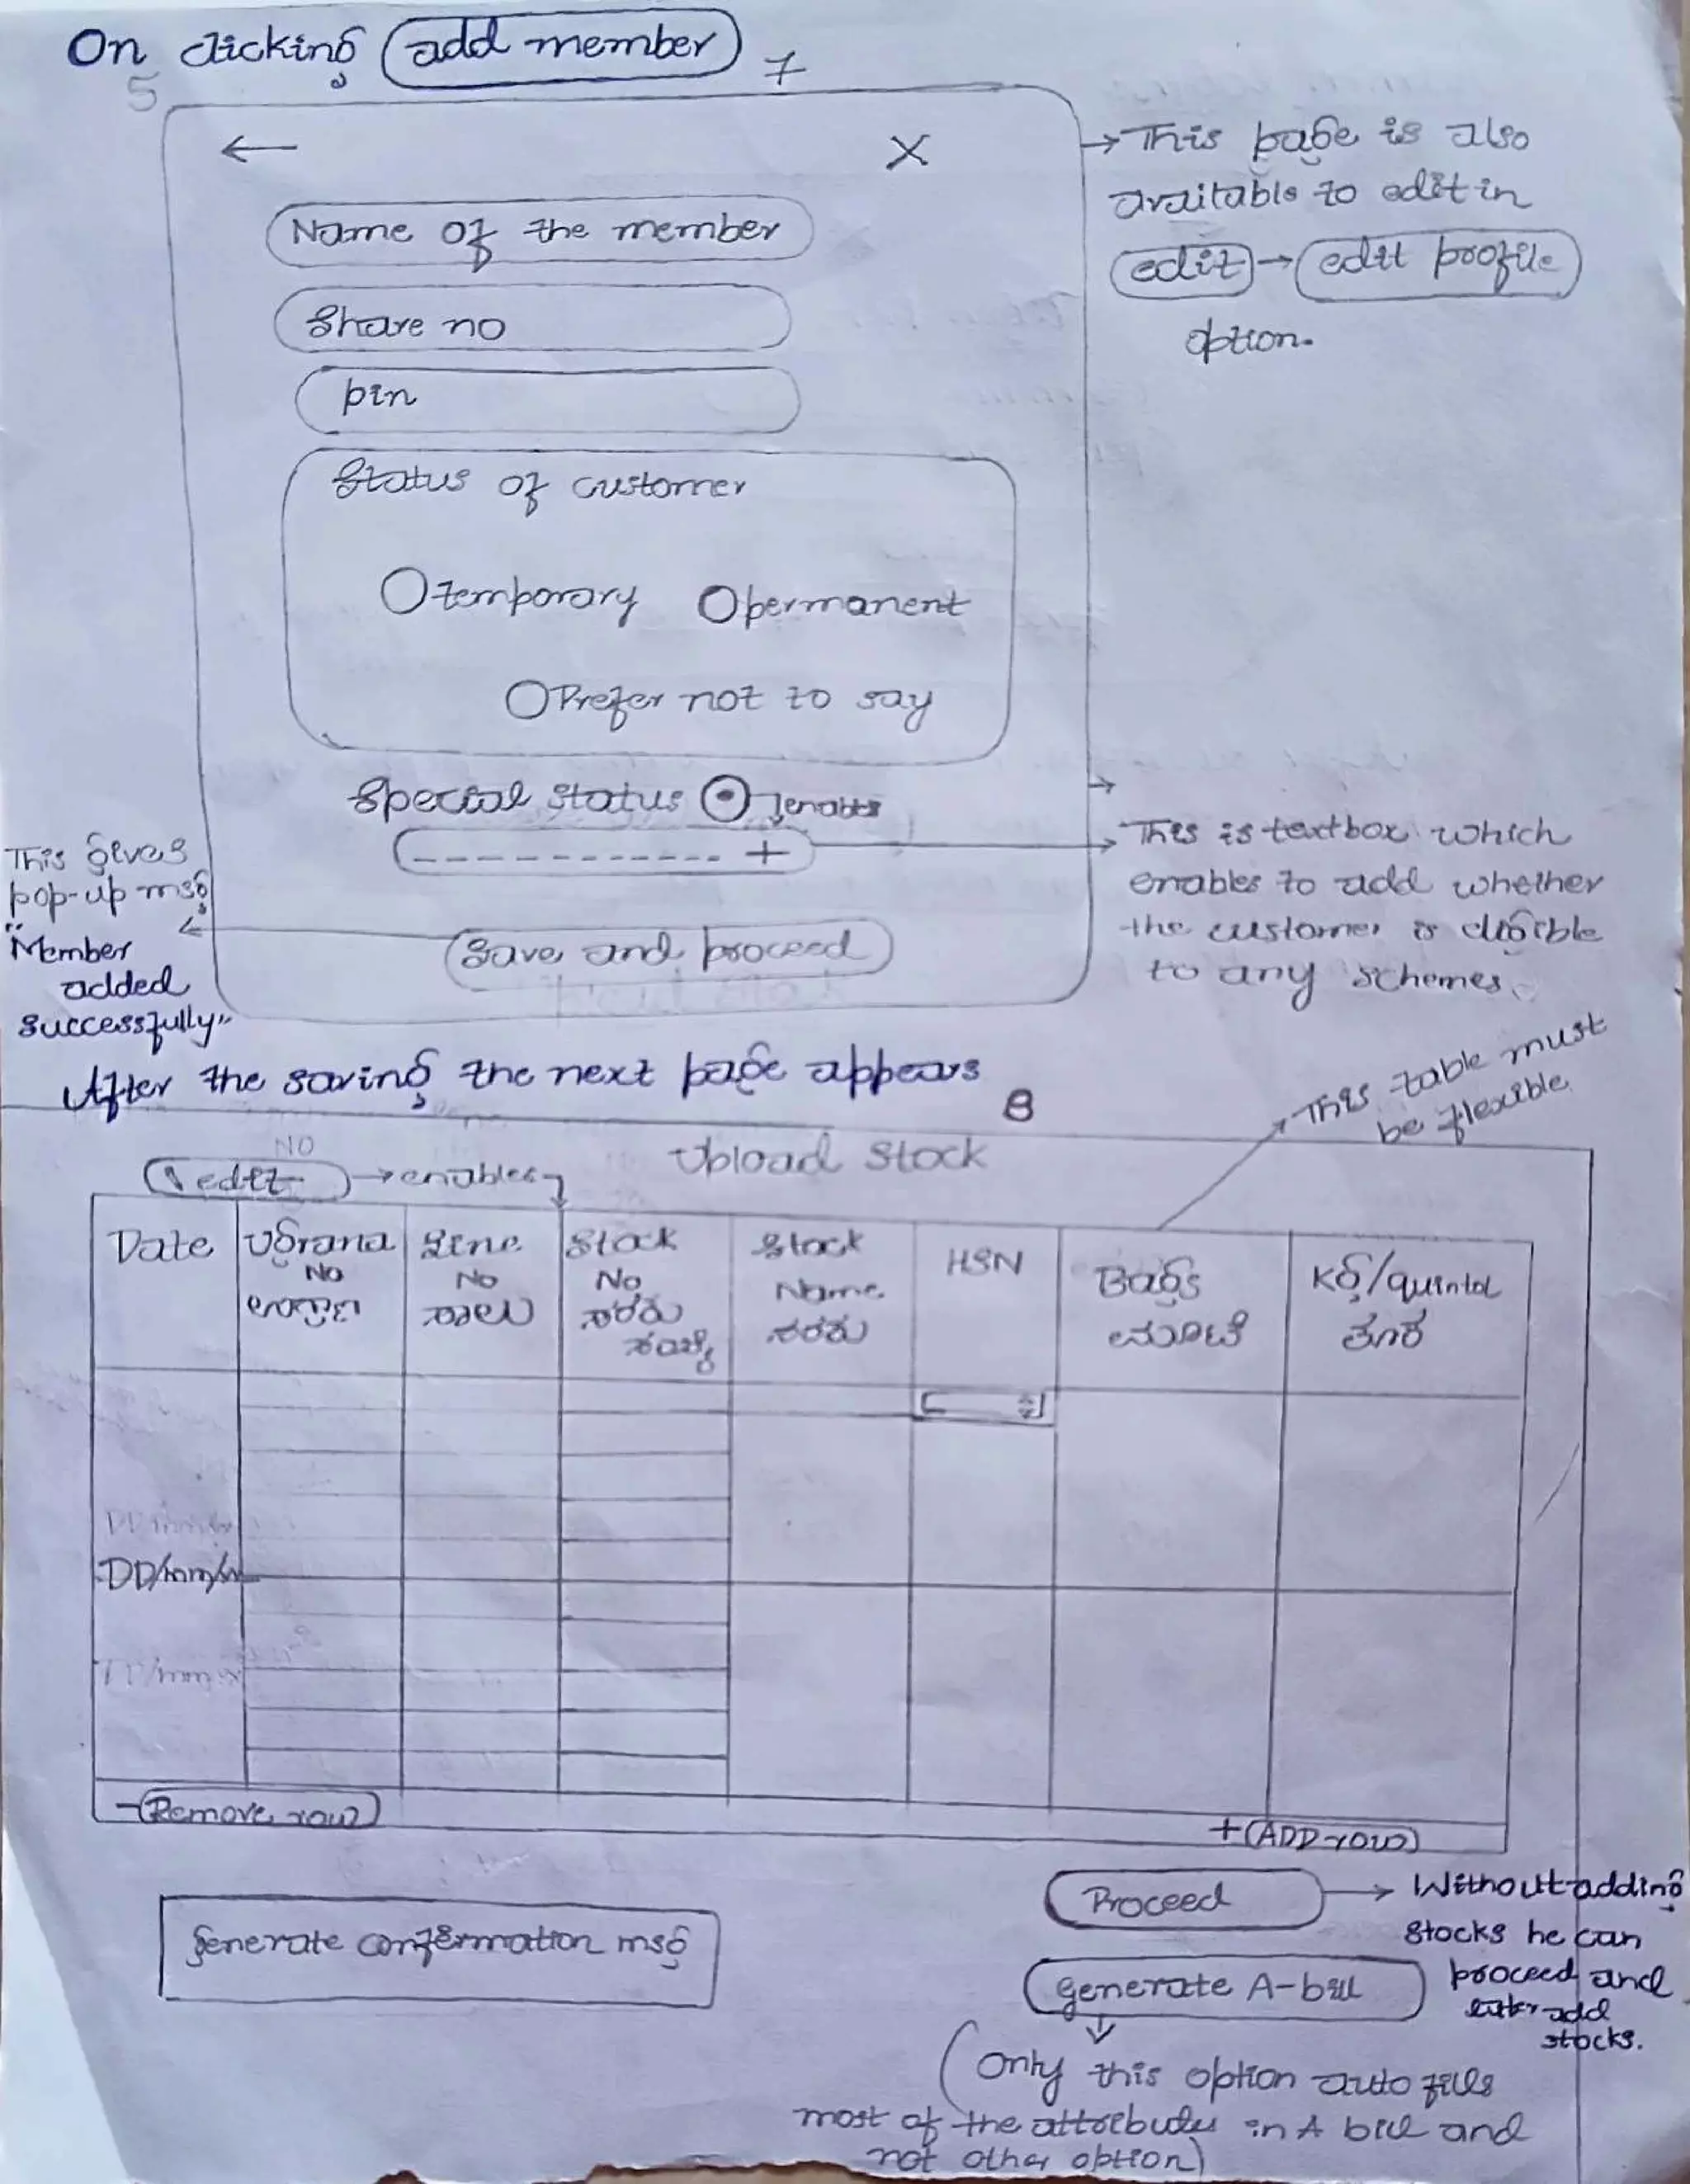 On clicking add member
7
5
← X
Name of the member
Share no
pin
Status of customer
temporary permanent
Prefer not to say
Special status enables
- - - - - - - - - - - +
Save and proceed
→ This page is also
available to edit in
edit → edit profile
option.
This is textbox which
enables to add whether
the customer is eligible
to any schemes.
This gives
pop-up msg
"Member
added
successfully"
After the saving the next page appears
8
This table must
be flexible
NO
edit → enables
Upload Stock
Date
Ugrana
No
ಉಗ್ರಾಣ
Line
No
ಸಾಲು
Stock
No
ಸರಕು
ಸಂಖ್ಯೆ
Stock
Name
ಸರಕು
HSN
Bags
ಮೂಟೆ
Kg/quintal
ತೂಕ
DD/mm/
-(Remove row)
+(ADD row)
Generate confirmation msg
Proceed → Without adding
stocks he can
proceed and
later add
stocks.
Generate A-bill
(Only this option auto fills
most of the attributes in A bill and
not other option)